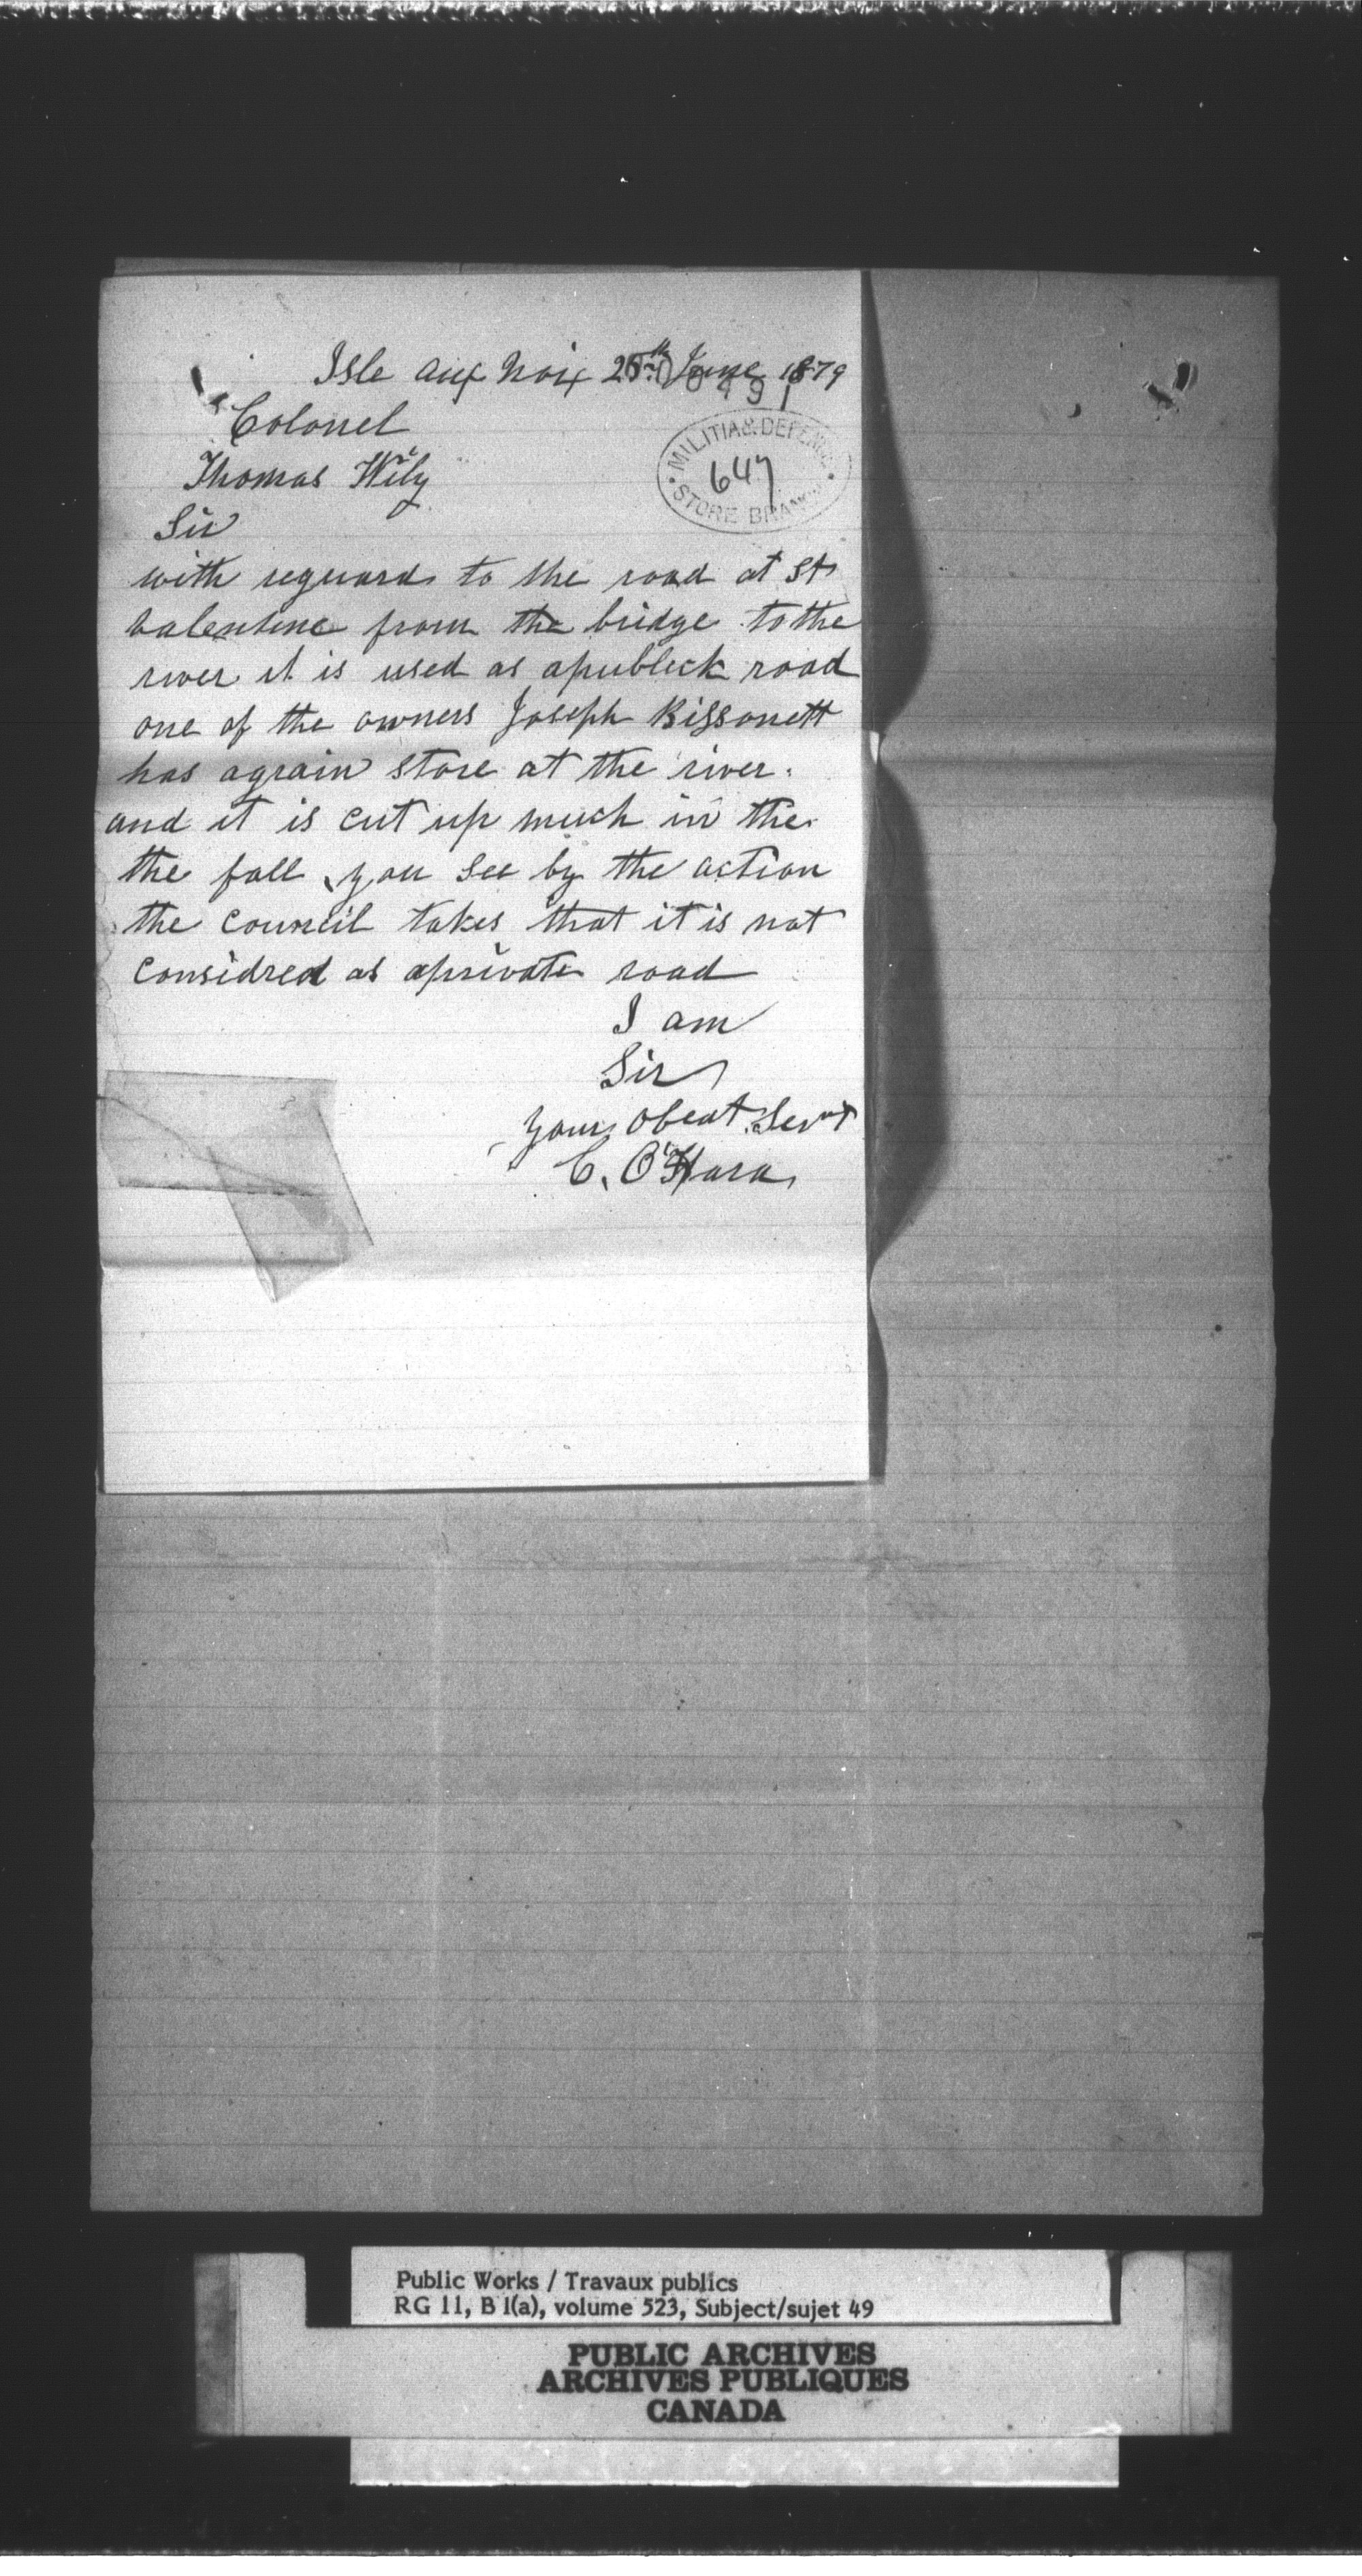 Isle aux Noix 25th June 1879
Colonel
Thomas Wily
MILITIA & DEFENCE
647
STORE BRANCH
Sir
with reguard to the road at St
Valentine from the bridge to the
river it is used as apublick road
one of the owners Joseph Bissonett
has agrain store at the river.
and it is cut up much in the
the fall, you see by the action
the Council takes that it is not
Considred as aprivate road
I am
Sir
your obeat Servt
C. O'Hara
Public Works / Travaux publics
RG 11, B 1(a), volume 523, Subject/sujet 49
PUBLIC ARCHIVES
ARCHIVES PUBLIQUES
CANADA